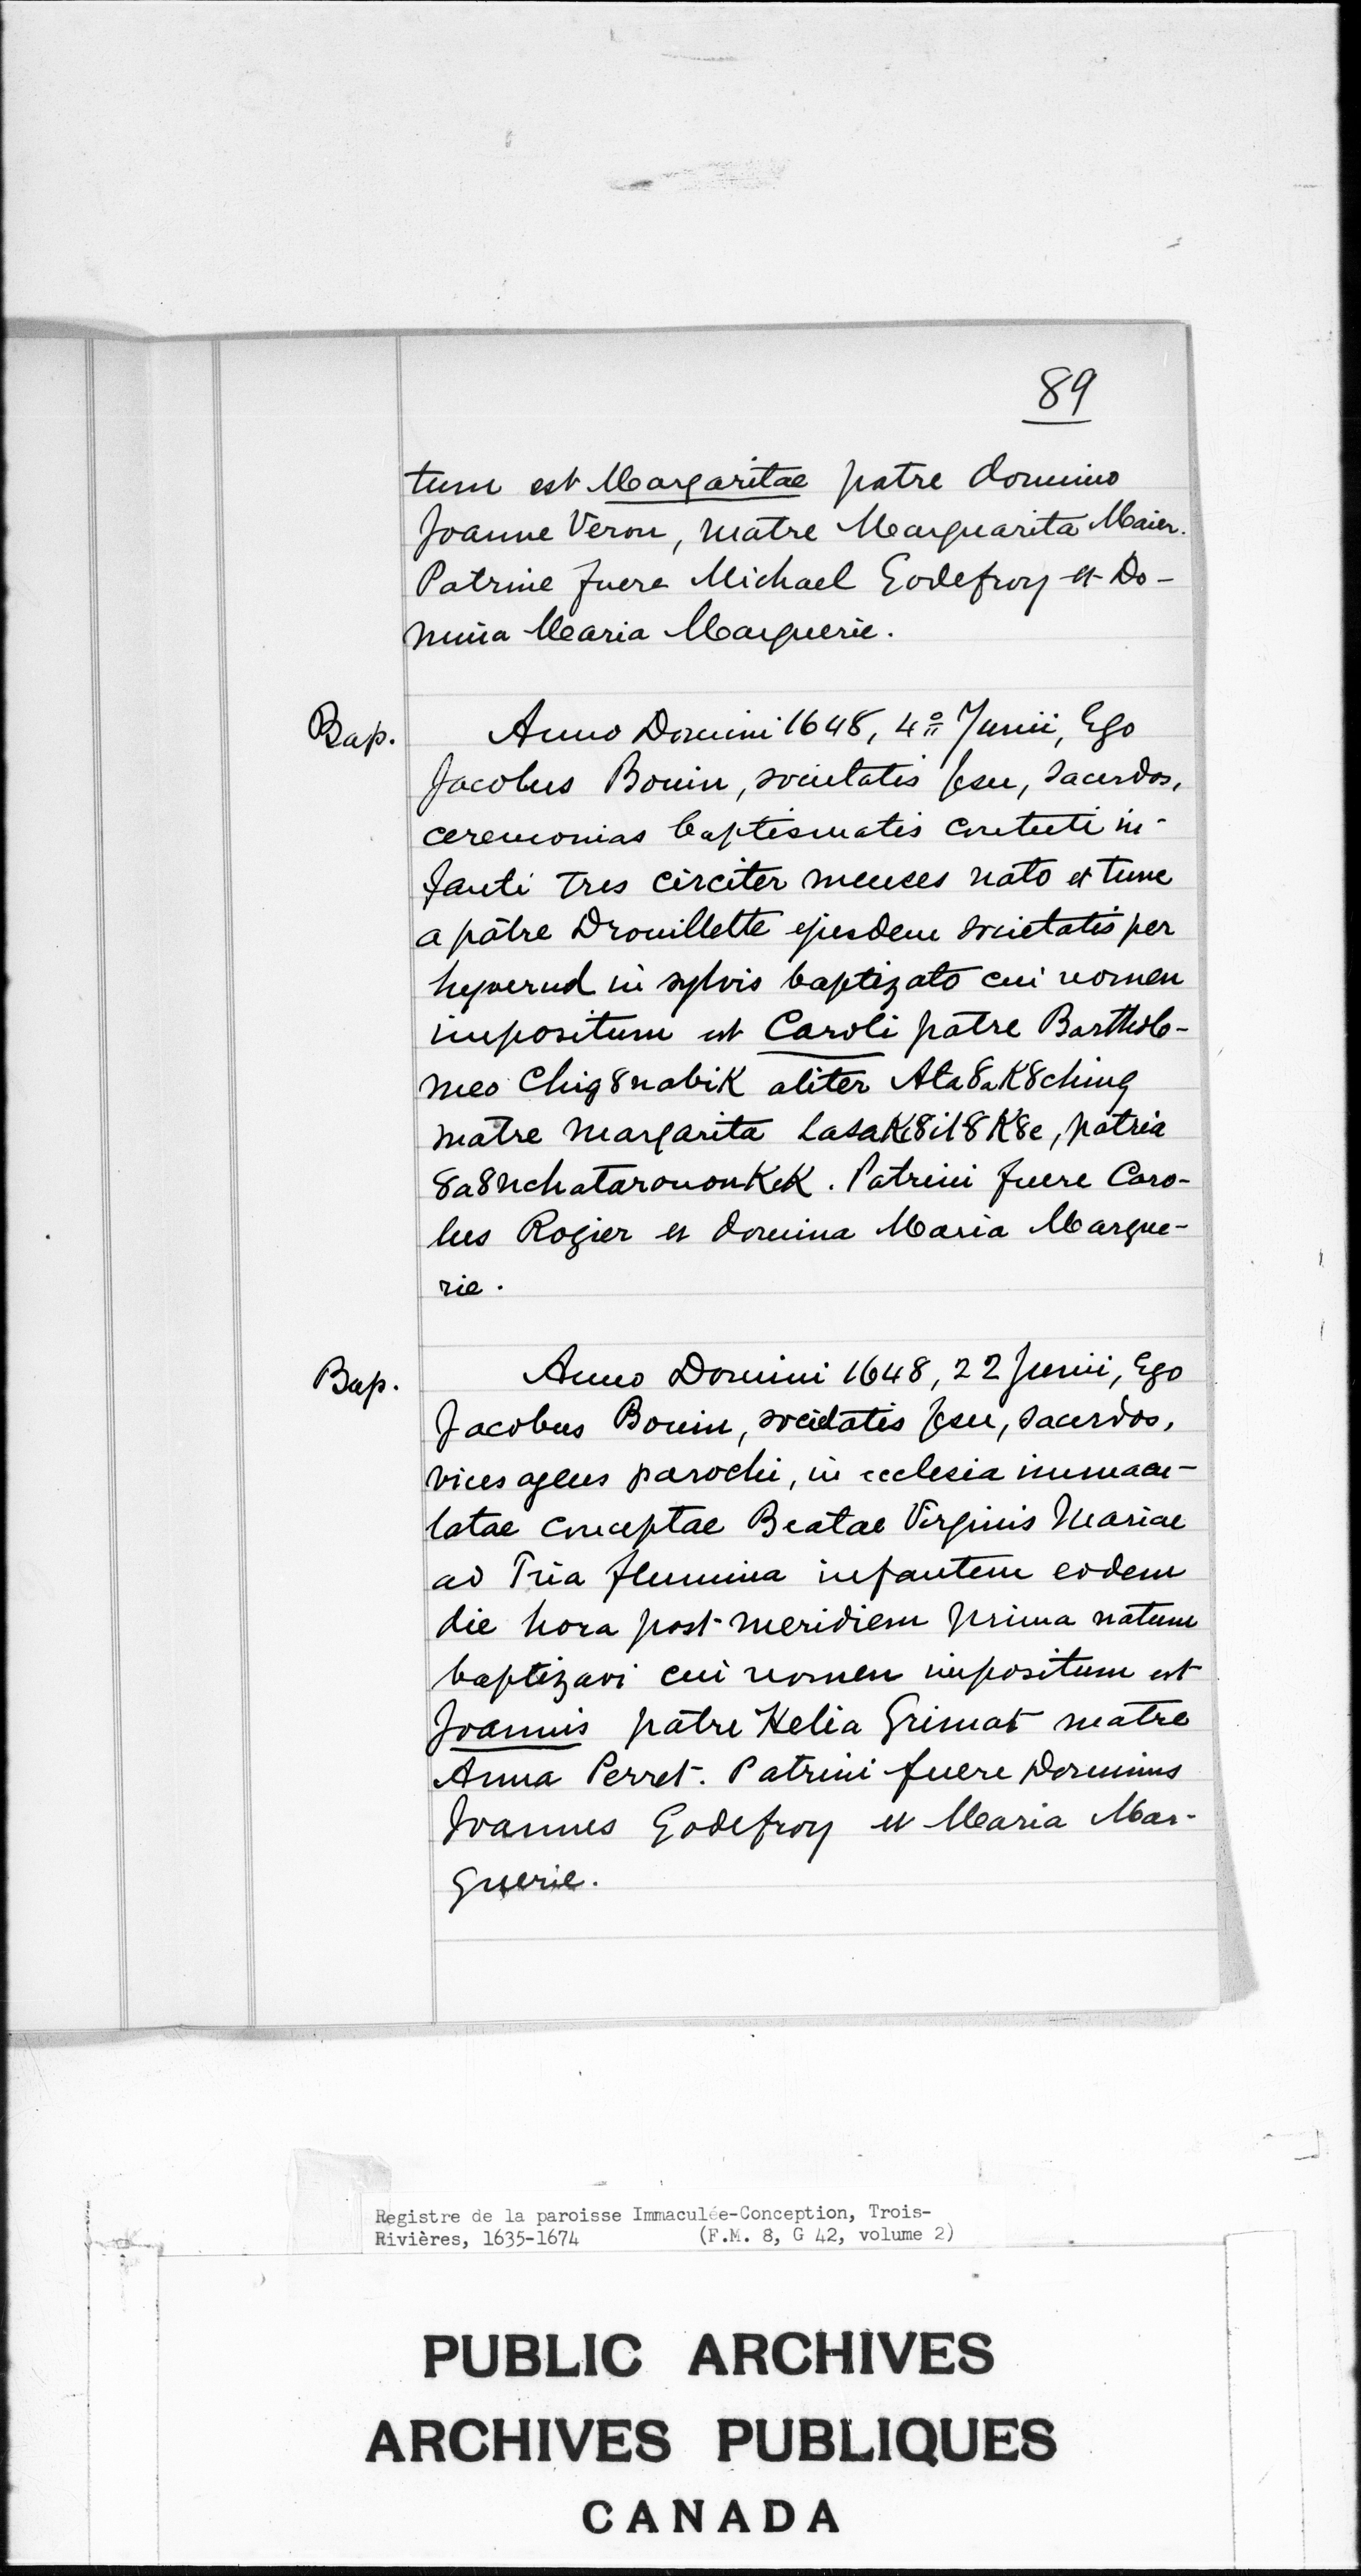 89
tum est Margaritae patre domino
Joanne Veron, matre Marguarita Maier.
Patrine fuere Michael Godefroy et Do-
mina Maria Marguerie.
Bap. Anno Domini 1648, 4º Junii, Ego
Jacobus Bouin, societatis Jesu, Sacerdos,
ceremonias baptismatis contuti in-
fanti tres circiter menses nato et tunc
a pâtre Drouillette ejusdem societatis per
hyvernd in sylvis baptizato cui nomen
impositum est Caroli pâtre Bartholo-
meo Chig8nabiK aliter Ata8aK8ching
matre Margarita LasaK8il8K8e, patria
8a8nchataronon KeK. Patrini fuere Caro-
lus Rogier et domina Maria Margue-
rie.
Bap. Anno Domini 1648, 22 Junii, Ego
Jacobus Bouin, societatis Jesu, sacerdos,
vices agens parochi, in ecclesia immacu-
latae conceptae Beatae Virginis Mariae
ad Tria flumina infantem eodem
die hora post meridiem prima natum
baptizavi cui nomen impositum est
Joannis patre Helia Grimat matre
Anna Perret. Patrini fuere Dominus
Joannes Godefroy et Maria Mar-
guerie.
Registre de la paroisse Immaculée-Conception, Trois-
Rivières, 1635-1674 (F.M. 8, G 42, volume 2)
PUBLIC ARCHIVES
ARCHIVES PUBLIQUES
CANADA